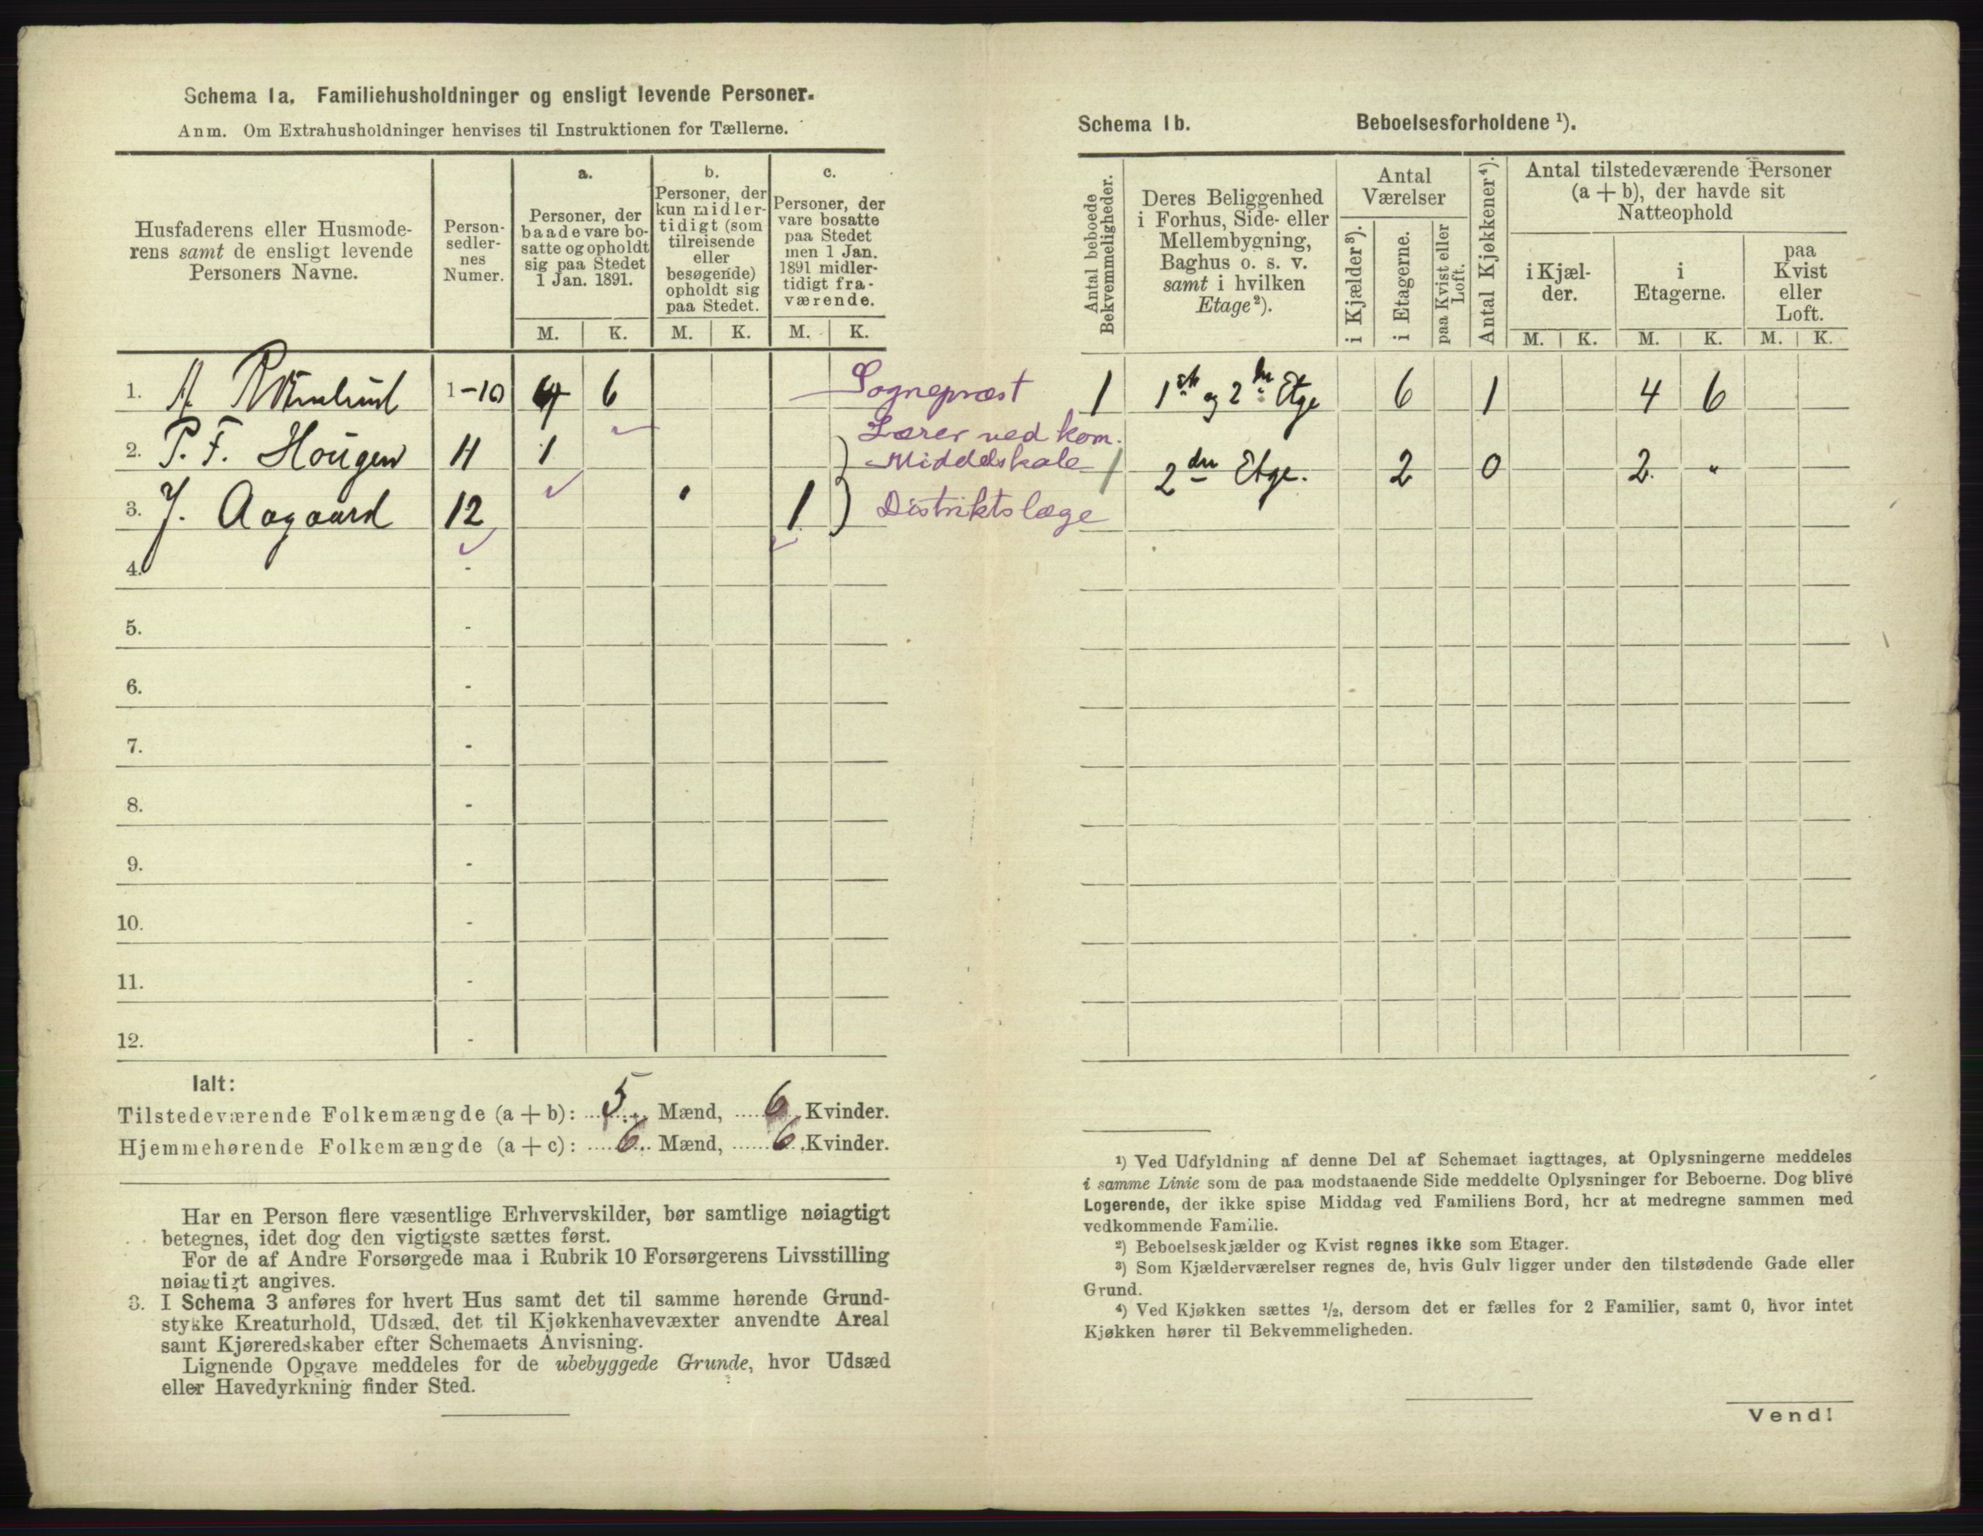 Schema 1a. Familiehusholdninger og ensligt levende Personer.
Anm. Om Extrahusholdninger henvises til Instruktionen for Tællerne.
Husfaderens eller Husmode-
rens samt de ensligt levende
Personers Navne.
Person-
sedler-
nes
Numer.
a.
Personer, der
baade vare bo-
satte og opholdt
sig paa Stedet
1 Jan. 1891.
b.
Personer, der
kun midler-
tidigt (som
tilreisende
eller
besøgende)
opholdt sig
paa Stedet.
c.
Personer, der
vare bosatte
paa Stedet
men 1 Jan.
1891 midler-
tidigt fra-
værende.
M. K. M. K. M. K.
1. A. 1-10 4 6 Sogneprest
2. P. F. Hougen 11 1 Lærer ved kom.
Middelskole
3. J. Aagaard 12 1 Distriktslæge
4. -
5. -
6. -
7. -
8. -
9. -
10. -
11. -
12. -
Ialt:
Tilstedeværende Folkemængde (a + b): 5 Mænd, 6 Kvinder.
Hjemmehørende Folkemængde (a + c): 6 Mænd, 6 Kvinder.
Har en Person flere væsentlige Erhvervskilder, bør samtlige nøiagtigt
betegnes, idet dog den vigtigste sættes først.
For de af Andre Forsørgede maa i Rubrik 10 Forsørgerens Livsstilling
nøiagtigt angives.
3. I Schema 3 anføres for hvert Hus samt det til samme hørende Grund-
stykke Kreaturhold, Udsæd, det til Kjøkkenhavevæxter anvendte Areal
samt Kjøreredskaber efter Schemaets Anvisning.
Lignende Opgave meddeles for de ubebyggede Grunde, hvor Udsæd
eller Havedyrkning finder Sted.
Schema 1b. Beboelsesforholdene ¹).
Antal beboede
Bekvemmeligheder.
Deres Beliggenhed
i Forhus, Side- eller
Mellembygning,
Baghus o. s. v.
samt i hvilken
Etage²).
Antal
Værelser
i Kjælder³).
i Etagerne.
paa Kvist eller
Loft.
Antal Kjøkkener⁴).
Antal tilstedeværende Personer
(a + b), der havde sit
Natteophold
i Kjæl-
der.
i
Etagerne.
paa
Kvist
eller
Loft.
M. K. M. K. M. K.
1 1ste og 2den Etge 6 1 4 6
1 2den Etge. 2 0 2. "
¹) Ved Udfyldning af denne Del af Schemaet iagttages, at Oplysningerne meddeles
i samme Linie som de paa modstaaende Side meddelte Oplysninger for Beboerne. Dog blive
Logerende, der ikke spise Middag ved Familiens Bord, her at medregne sammen med
vedkommende Familie.
²) Beboelseskjælder og Kvist regnes ikke som Etager.
³) Som Kjælderværelser regnes de, hvis Gulv ligger under den tilstødende Gade eller
Grund.
⁴) Ved Kjøkken sættes ½, dersom det er fælles for 2 Familier, samt 0, hvor intet
Kjøkken hører til Bekvemmeligheden.
Vend!